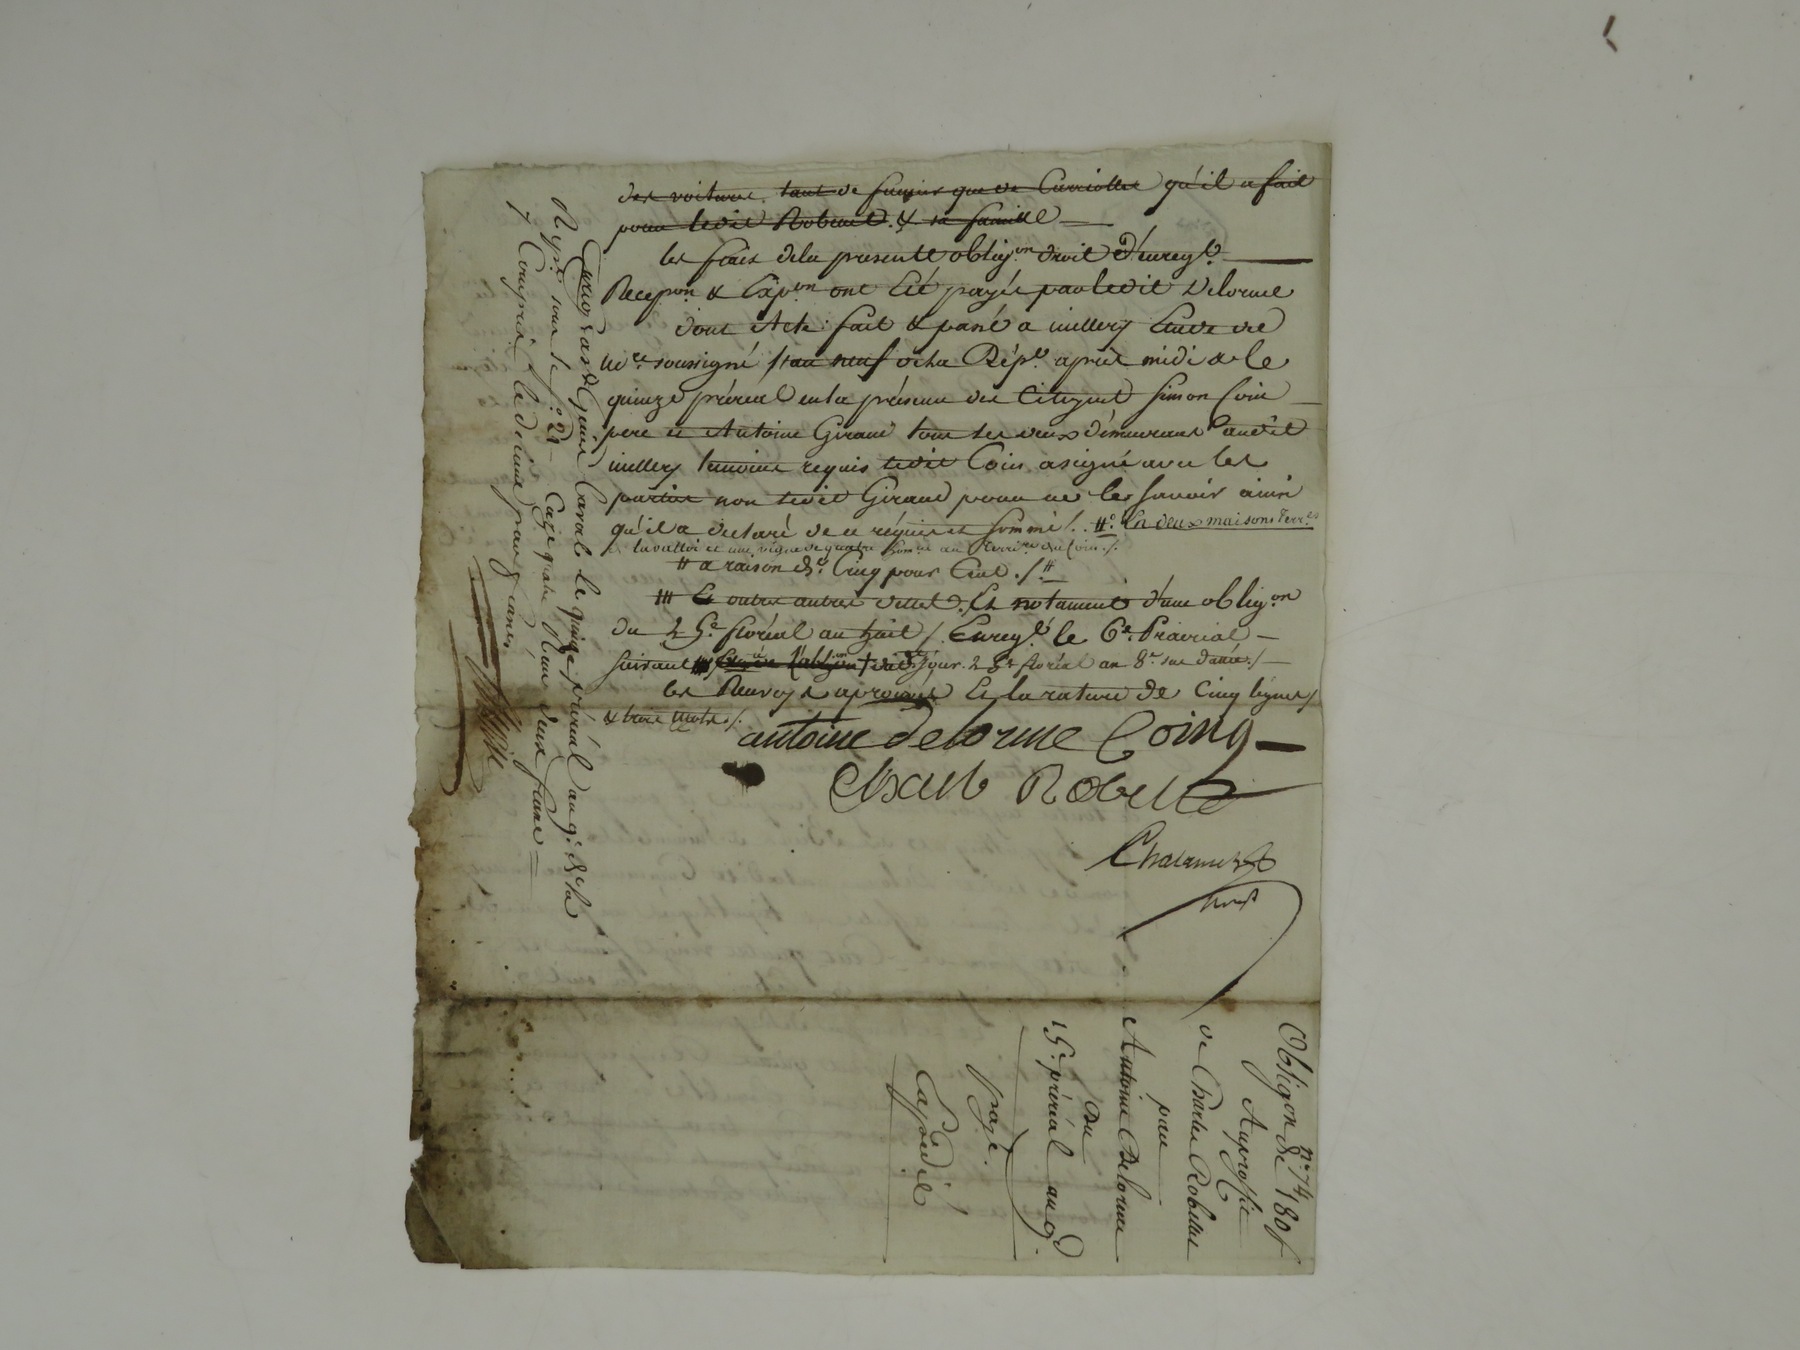 des voitures tant de fumier que de Carriolles qu'il a fait
pour ledit Robert & sa famille
les frais dela presente oblig.on droit d'enreg.t
Recep.on & Exp.on ont été payés par ledit Delorme
dont Acte : fait & passé a millery Etude de
n.re soussigné l'an neuf de la Rép.e après midi & le
quinze préréal en la présence des Citoyens Simon Coin
pere et Antoine Giraud tous les deux démeurants audit
millery temoins requis ledit Coin a signé avec les
parties non ledit Giraud pour ne les savoir ainsi
qu'il a declaré de ce réquis et sommé /. #° En deux maisons terr.es
et une vigne de quatre hom.es au territ.re du Coin /.
# a raison de Cinq pour Cent ./. #
### & outres autres dettes. Et notament d'une oblig.on
du 25.e floréal an huit / Enreg.é le 6.e Prairial
suivant jour 25.e floréal an 8.e sus datée /.
les Renvoys aprouvés Et la rature de Cinq lignes /
& trois mots /.
antoine delorme Coing
Charle Robert
not.re
Enreg.é à St Genis Laval le quinze préréal an 9.e de la
Rép.e sous le f.o 21 Caze quatre Reçu deux francs
y Compris le dixieme par franc
n.o 74
Obligon de 180 f
Au profit
de Charles Robert
par
Antoine Delorme
Du
15.e préréal an 9.
payé.
Expedié